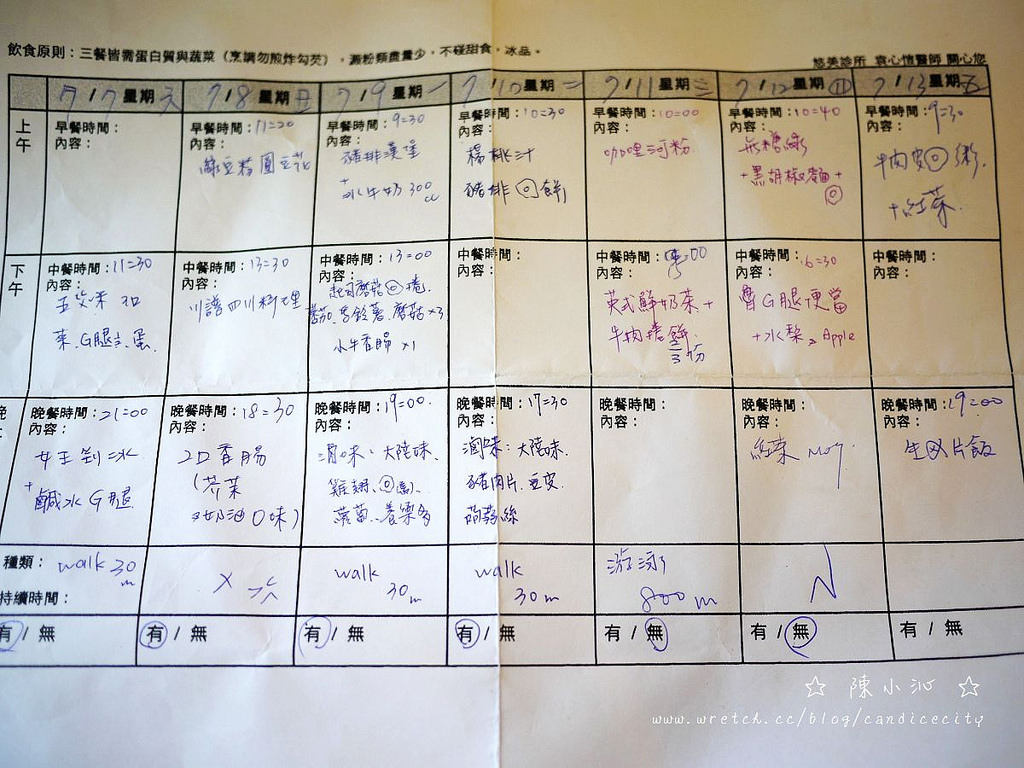 飲食原則：三餐皆需蛋白質與蔬菜（烹調勿煎炸勾芡），澱粉類盡量少，不碰甜食，冰品。
悠美診所 袁心愷醫師 關心您
7/7星期天 7/8星期日 7/9星期一 7/10星期二 7/11星期三 7/12星期四 7/13星期五
上午
早餐時間：
內容：
早餐時間：11=20
內容：
綠豆粉圓豆花
早餐時間：9=30
內容：
豬排漢堡
+
冰牛奶300cc
早餐時間：10=30
內容：
楊桃汁
豬排 餅
早餐時間：10=00
內容：
咖哩河粉
早餐時間：10=40
內容：
無糖綠
+黑胡椒麵+
早餐時間：9=30
內容：
牛肉 粥
+紅菜
下午
中餐時間：11=30
內容：
五榖米
菜、G腿、蛋
中餐時間：13=30
內容：
川譜四川料理
中餐時間：13=00
內容：
起司蘑菇 捲
番茄、馬鈴薯、蘑菇×3
水牛香腸×1
中餐時間：
內容：
中餐時間：
內容：
英式鮮奶茶+
牛肉捲餅
2/3份
中餐時間：
內容：
G腿便當
+水梨、Apple
中餐時間：
內容：
晚
晚餐時間：21=00
內容：
女王剉冰
+鹹水G腿
晚餐時間：18=30
內容：
2D香腸
(芥菜
奶油口味)
晚餐時間：19=00
內容：
滷味：大陸妹、
雞翅、
蘿蔔、養樂多
晚餐時間：17=30
內容：
滷味：大陸妹、
豬肉片、豆皮、
蒟蒻絲
晚餐時間：
內容：
晚餐時間：
內容：
晚餐時間：19=00
內容：
片飯
種類：
持續時間：
walk 30m
×
walk
30m
walk
30m
游泳
800m
N
有 / 無 有 / 無 有 / 無 有 / 無 有 / 無 有 / 無 有 / 無
☆ 陳小沁 ☆
www.wretch.cc/blog/candicecity